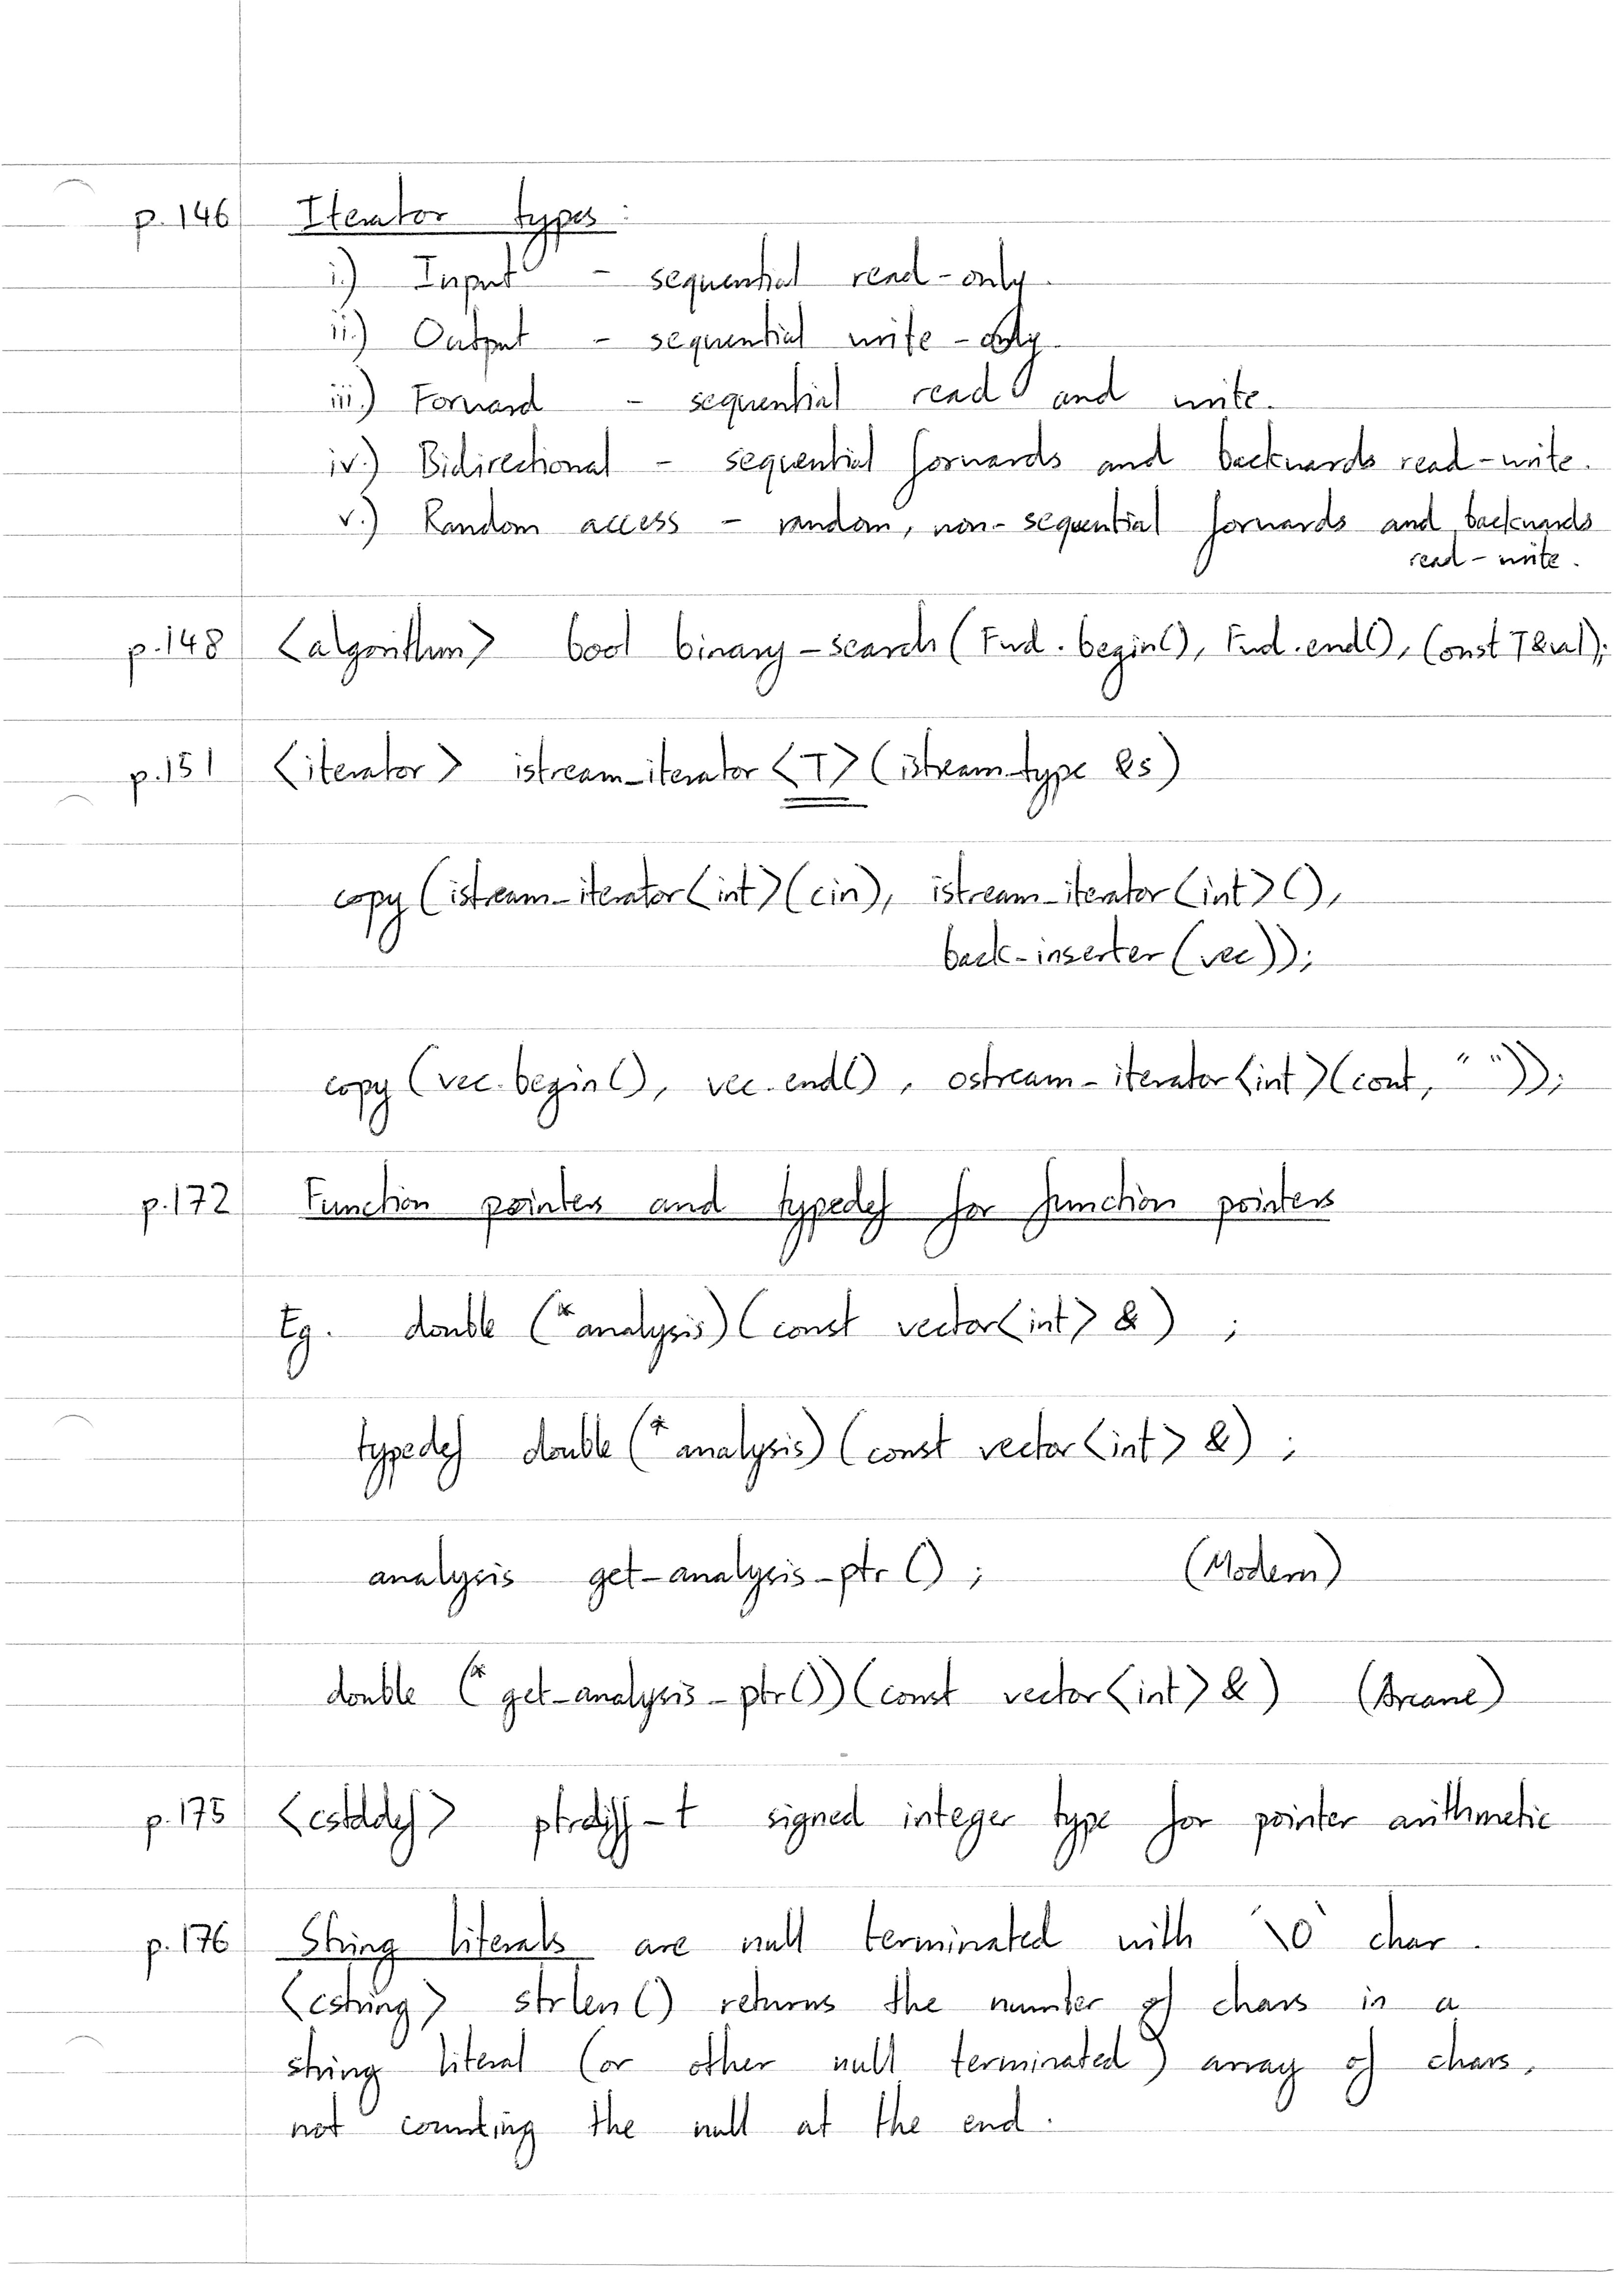 p.146 Iterator types:
i.) Input - sequential read-only.
ii.) Output - sequential write-only.
iii.) Forward - sequential read and write.
iv.) Bidirectional - sequential forwards and backwards read-write.
v.) Random access - random, non-sequential forwards and backwards
read-write.
p.148 <algorithm> bool binary_search(Fwd.begin(), Fwd.end(), const T&val);
p.151 <iterator> istream_iterator<T>(istream_type &s)
copy(istream_iterator<int>(cin), istream_iterator<int>(),
back_inserter(vec));
copy(vec.begin(), vec.end(), ostream_iterator<int>(cout, " "));
p.172 Function pointers and typedef for function pointers
Eg. double (*analysis)(const vector<int> &) ;
typedef double (*analysis)(const vector<int> &) ;
analysis get_analysis_ptr() ; (Modern)
double (*get_analysis_ptr())(const vector<int> &) (Arcane)
p.175 <cstddef> ptrdiff_t signed integer type for pointer arithmetic
p.176 String literals are null terminated with '\0' char.
<cstring> strlen() returns the number of chars in a
string literal (or other null terminated) array of chars,
not counting the null at the end.